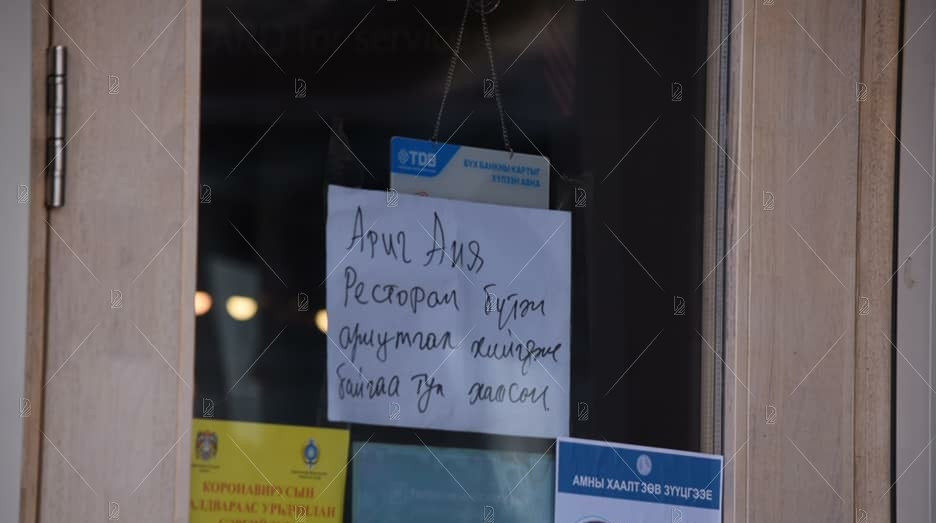 TDB
БҮХ БАНКНЫ КАРТЫГ
ХҮЛЭЭН АВНА
Ариг Аня
Ресторан бүтэн
ариутгал хийгдэж
байгаа тул хаасан.
КОРОНАВИРУСЫН
АЛДВАРААС УРЬДЧИЛАН
АМНЫ ХААЛТ ЗӨВ ЗҮҮЦГЭЭЕ